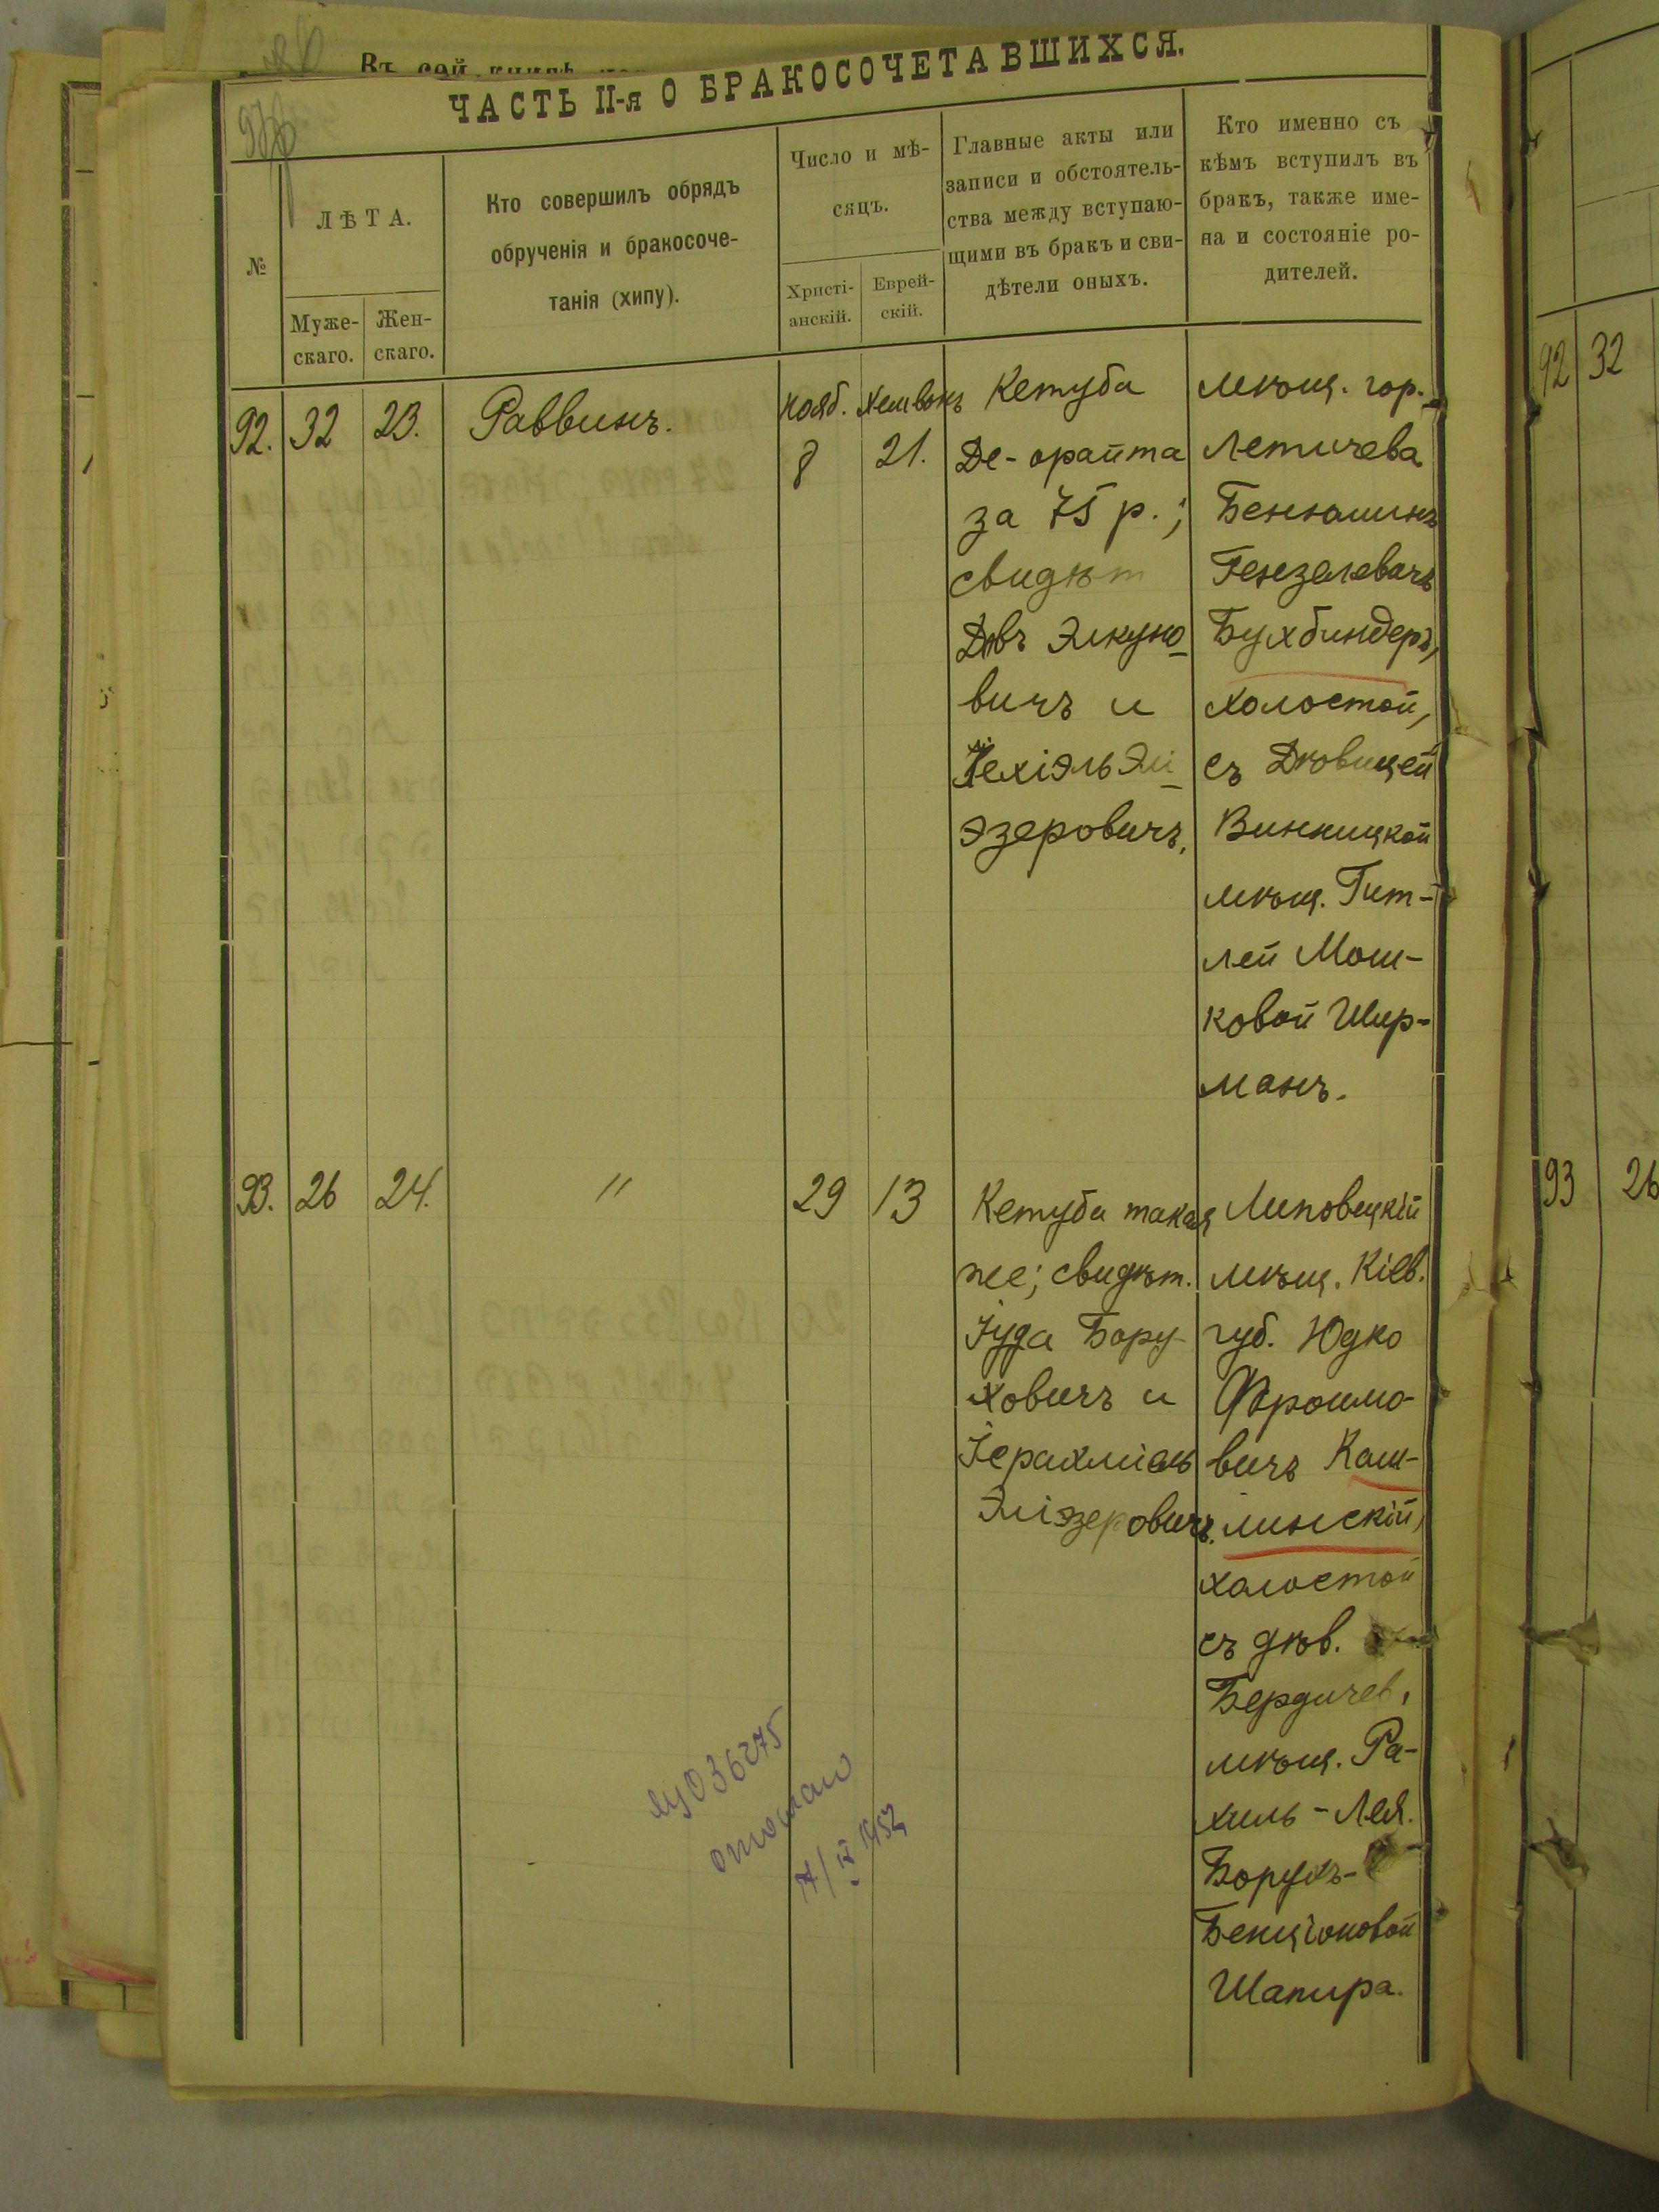 ЧАСТЬ II-я О БРАКОСОЧЕТАВШИХСЯ.
№
ЛѢТА.
Муже-
скаго.
Жен-
скаго.
Кто совершилъ обрядъ
обрученія и бракосоче-
танія (хипу).
Число и мѣ-
сяцъ.
Христі-
анскій.
Еврей-
скій.
Главные акты или
записи и обстоятель-
ства между вступаю-
щими въ бракъ и сви-
дѣтели оныхъ.
Кто именно съ
кѣмъ вступилъ въ
бракъ, также име-
на и состояніе ро-
дителей.
92.
32
23.
Раввинъ.
Нояб.
8
Хешвонъ
21.
Кетуба
Де-орайта
за 75 р.;
свидѣт
Довъ Элкуно
вичъ и
Іехіэль Эли
эзеровичъ,
мѣщ. гор.
Летичева
Бенюминъ
Гензелевичъ
Бухбиндеръ,
холостой,
съ Дѣвицей
Винницкой
мѣщ. Гит-
лей Мош-
ковой Шир-
манъ.
93.
26
24.
"
29
13
Кетуба такая
же; свидѣт.
Іуда Бору-
ховичъ и
Іерахміэль
Эліэзеровичъ.
Липовецкій
мѣщ. Кіев.
губ. Юдко
Фроимо-
вичъ Каш-
линскій,
холостой
съ дѣв.
Бердичев.
мѣщ. Ра-
хиль-Лея.
Борухъ-
Бенціоновой
Шапира.
036275
отослано
1952
92
32
93
26